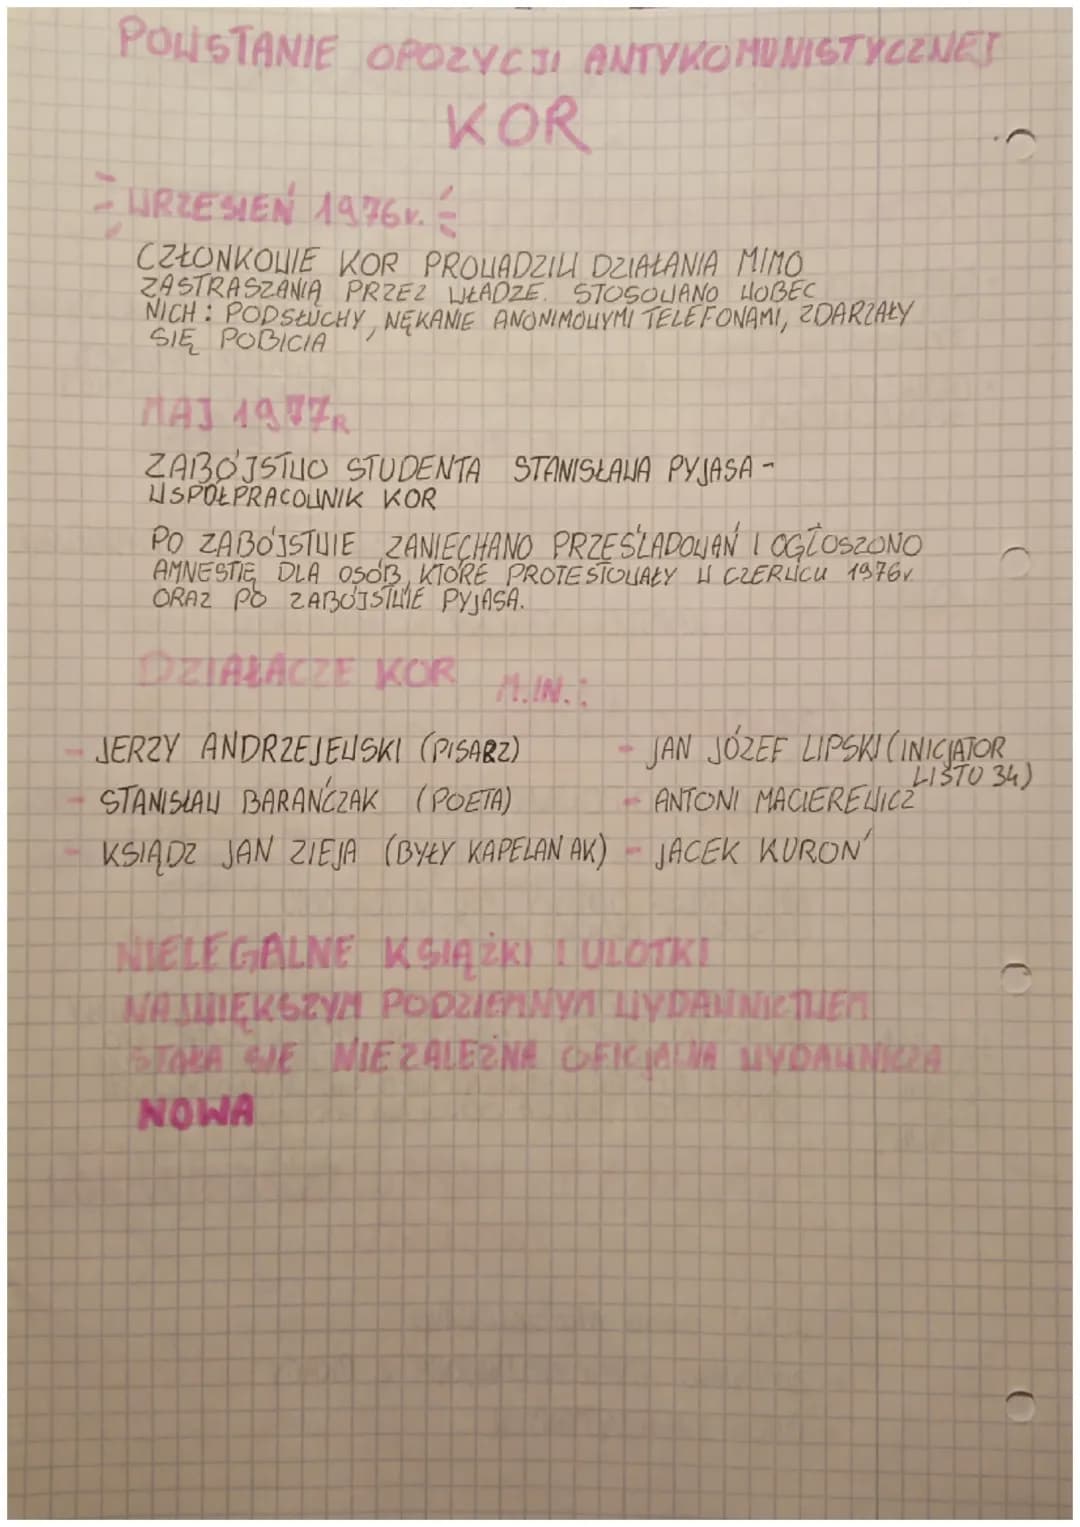 POWSTANIE OPOZYCJI ANTYKOMUNISTYCZNEJ
KOR
WRZESIEŃ 1976r.
CZŁONKOWIE KOR PROWADZILI DZIAŁANIA MIMO
ZASTRASZANIA PRZEZ WŁADZE. STOSOWANO WOBEC
NICH: PODSŁUCHY, NĘKANIE ANONIMOWYMI TELEFONAMI, ZDARZAŁY
SIĘ POBICIA
MAJ 1977R
ZABÓJSTWO STUDENTA STANISŁAWA PYJASA -
WSPÓŁPRACOWNIK KOR
PO ZABÓJSTWIE ZANIECHANO PRZEŚLADOWAŃ I OGŁOSZONO
AMNESTIĘ DLA OSÓB, KTÓRE PROTESTOWAŁY W CZERWCU 1976r
ORAZ PO ZABÓJSTWIE PYJASA.
DZIAŁACZE KOR M.IN.:
- JERZY ANDRZEJEWSKI (PISARZ)
- STANISŁAW BARAŃCZAK (POETA)
- KSIĄDZ JAN ZIEJA (BYŁY KAPELAN AK)
- JAN JÓZEF LIPSKI (INICJATOR
LISTU 34)
- ANTONI MACIEREWICZ
- JACEK KUROŃ
NIELEGALNE KSIĄŻKI I ULOTKI
NAJWIĘKSZYM PODZIEMNYM WYDAWNICTWEM
STAŁA SIĘ NIEZALEŻNA OFICJALNA WYDAWNICZA
NOWA